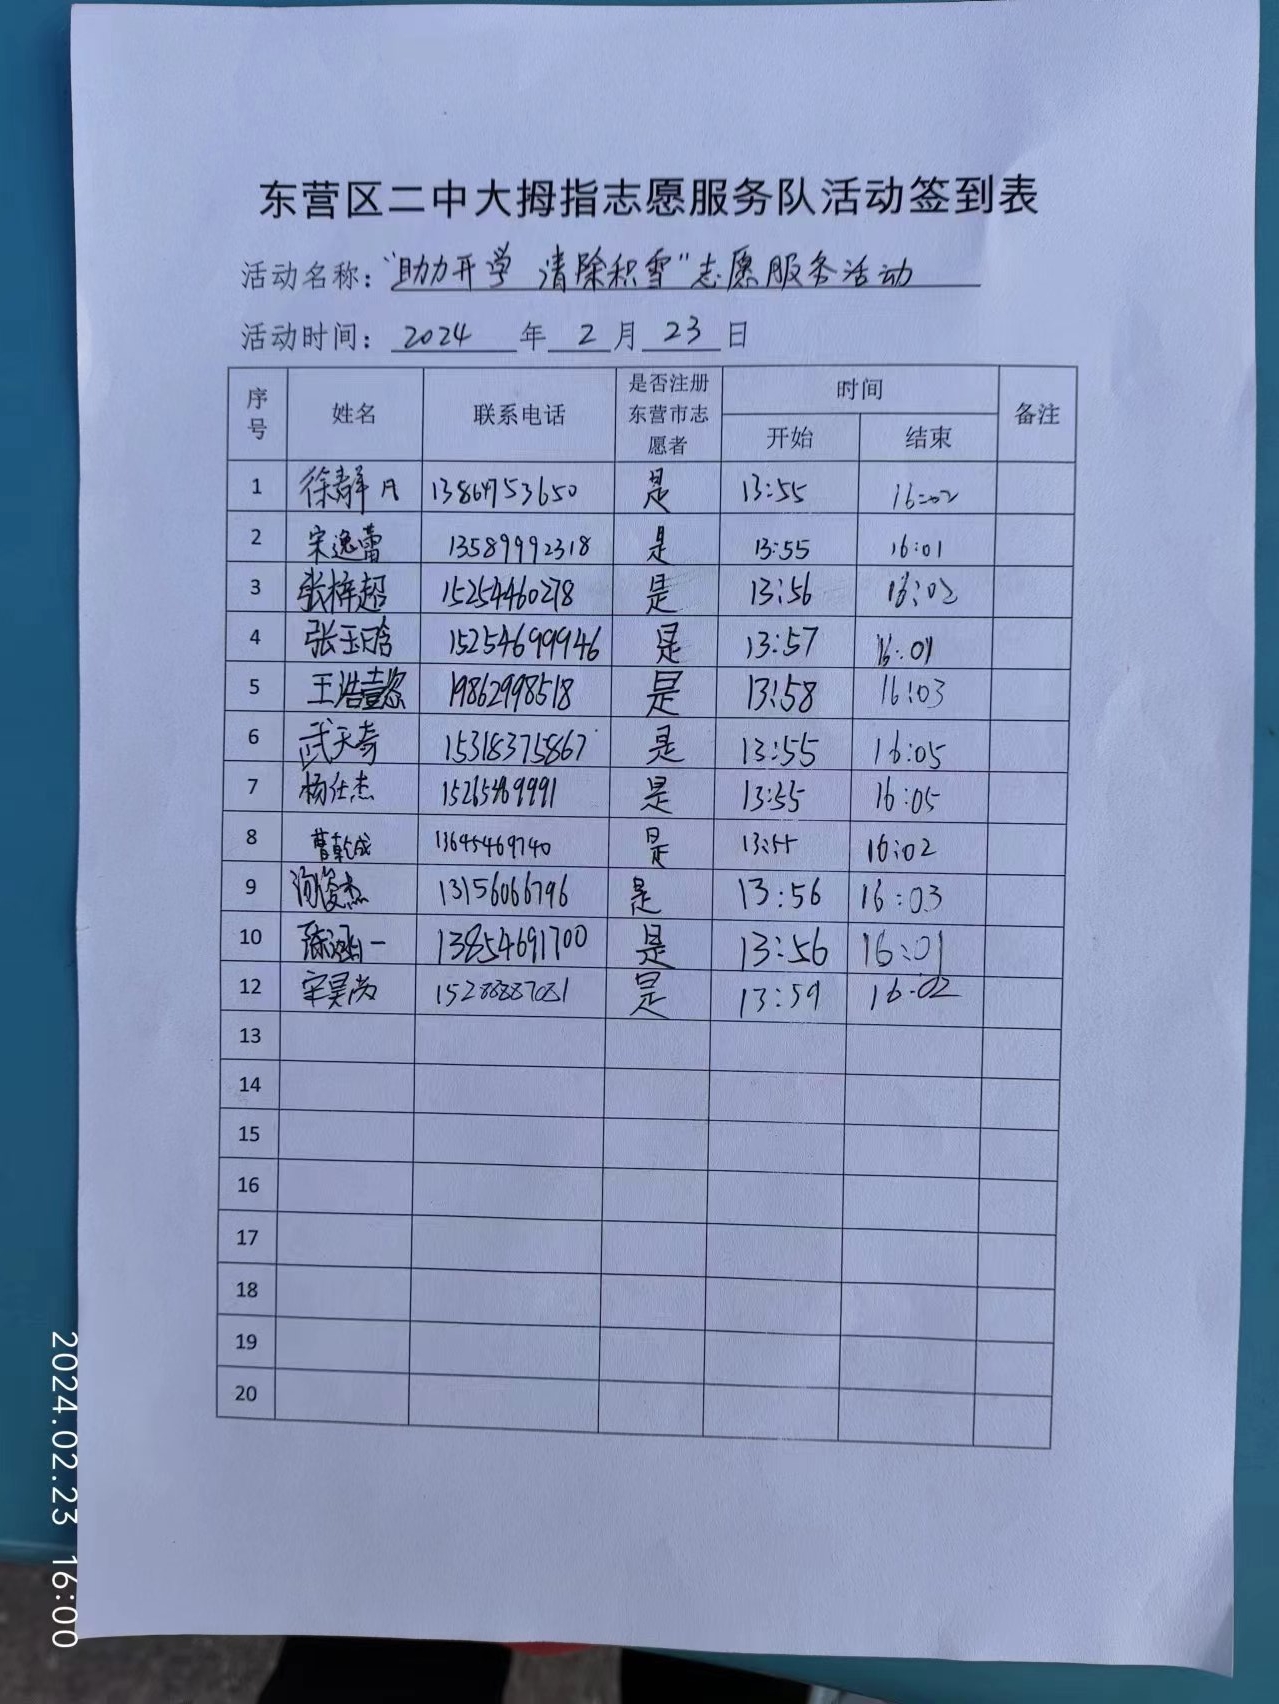 东营区二中大拇指志愿服务队活动签到表
活动名称：“助力开学 清除积雪”志愿服务活动
活动时间： 2024 年 2 月 23 日
序号 姓名 联系电话 是否注册东营市志愿者 时间 备注
开始 结束
1 徐静凡 13864753650 是 13:55 16:02
2 宋逸蕾 13589992318 是 13:55 16:01
3 张梓超 15254460278 是 13:56 16:02
4 张玉晗 15254699946 是 13:57 16:01
5 王浩 19862998518 是 13:58 16:03
6 武天奇 15318375867 是 13:55 16:05
7 杨仕杰 是 13:55 16:05
8 曹乾成 13645469740 是 13:55 16:02
9 俊杰 13156066796 是 13:56 16:03
10 陈涵一 13854691700 是 13:56 16:01
12 宋昊尚 15288887081 是 13:59 16:02
13
14
15
16
17
18
19
20
2024.02.23 16:00